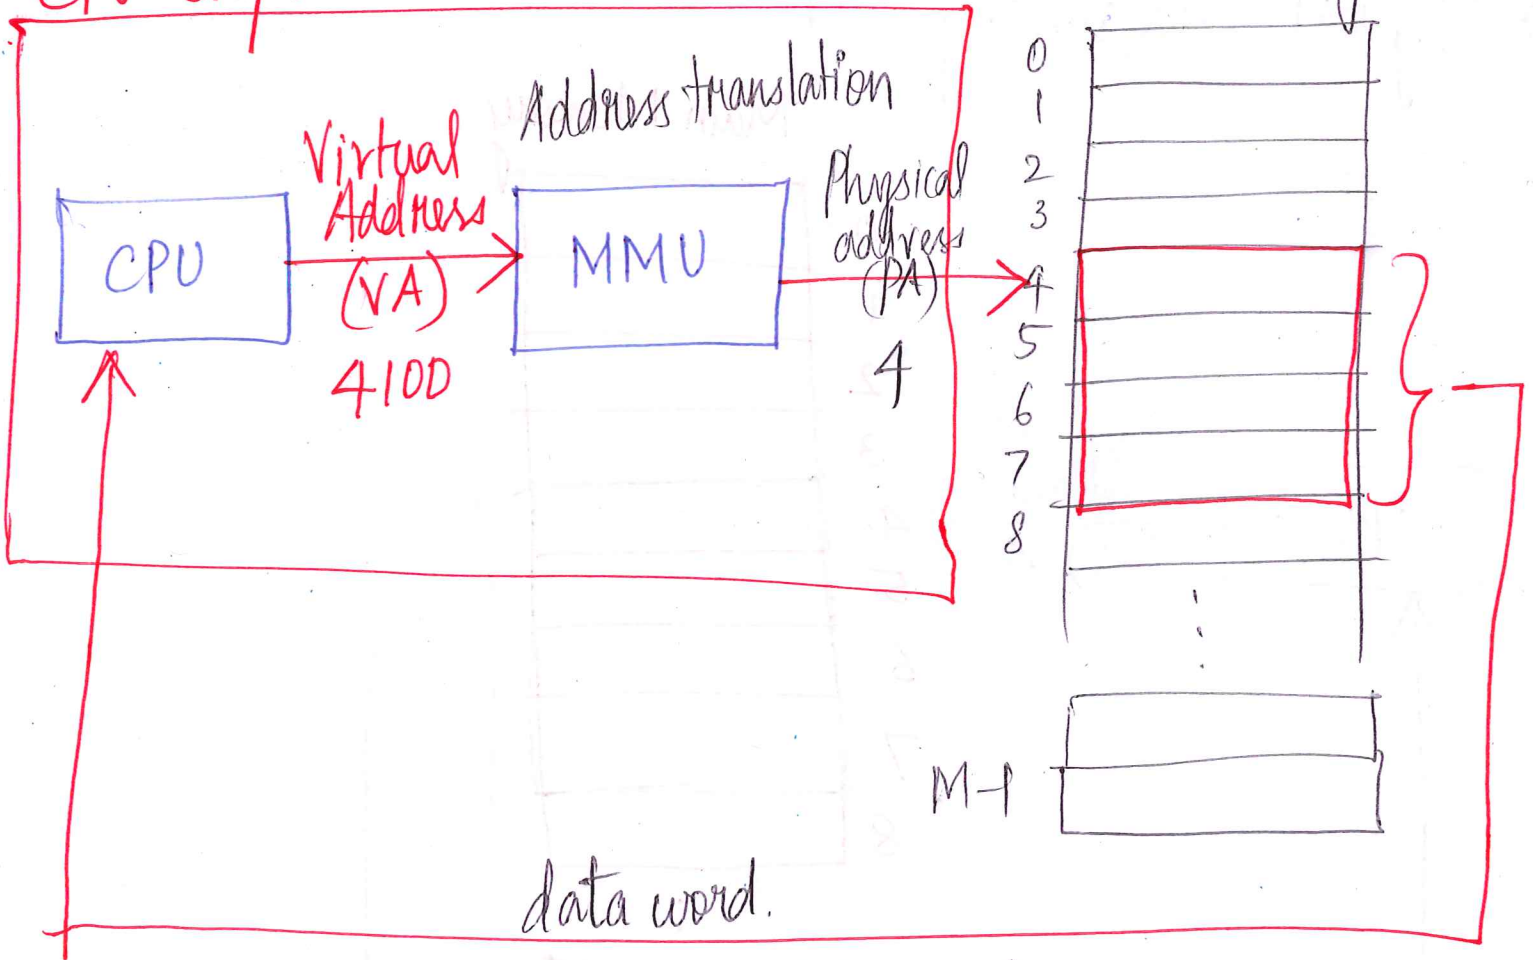 Address translation
Virtual
Address
(VA)
4100
CPU
MMU
Physical
address
(PA)
4
0
1
2
3
4
5
6
7
8
M-1
data word.